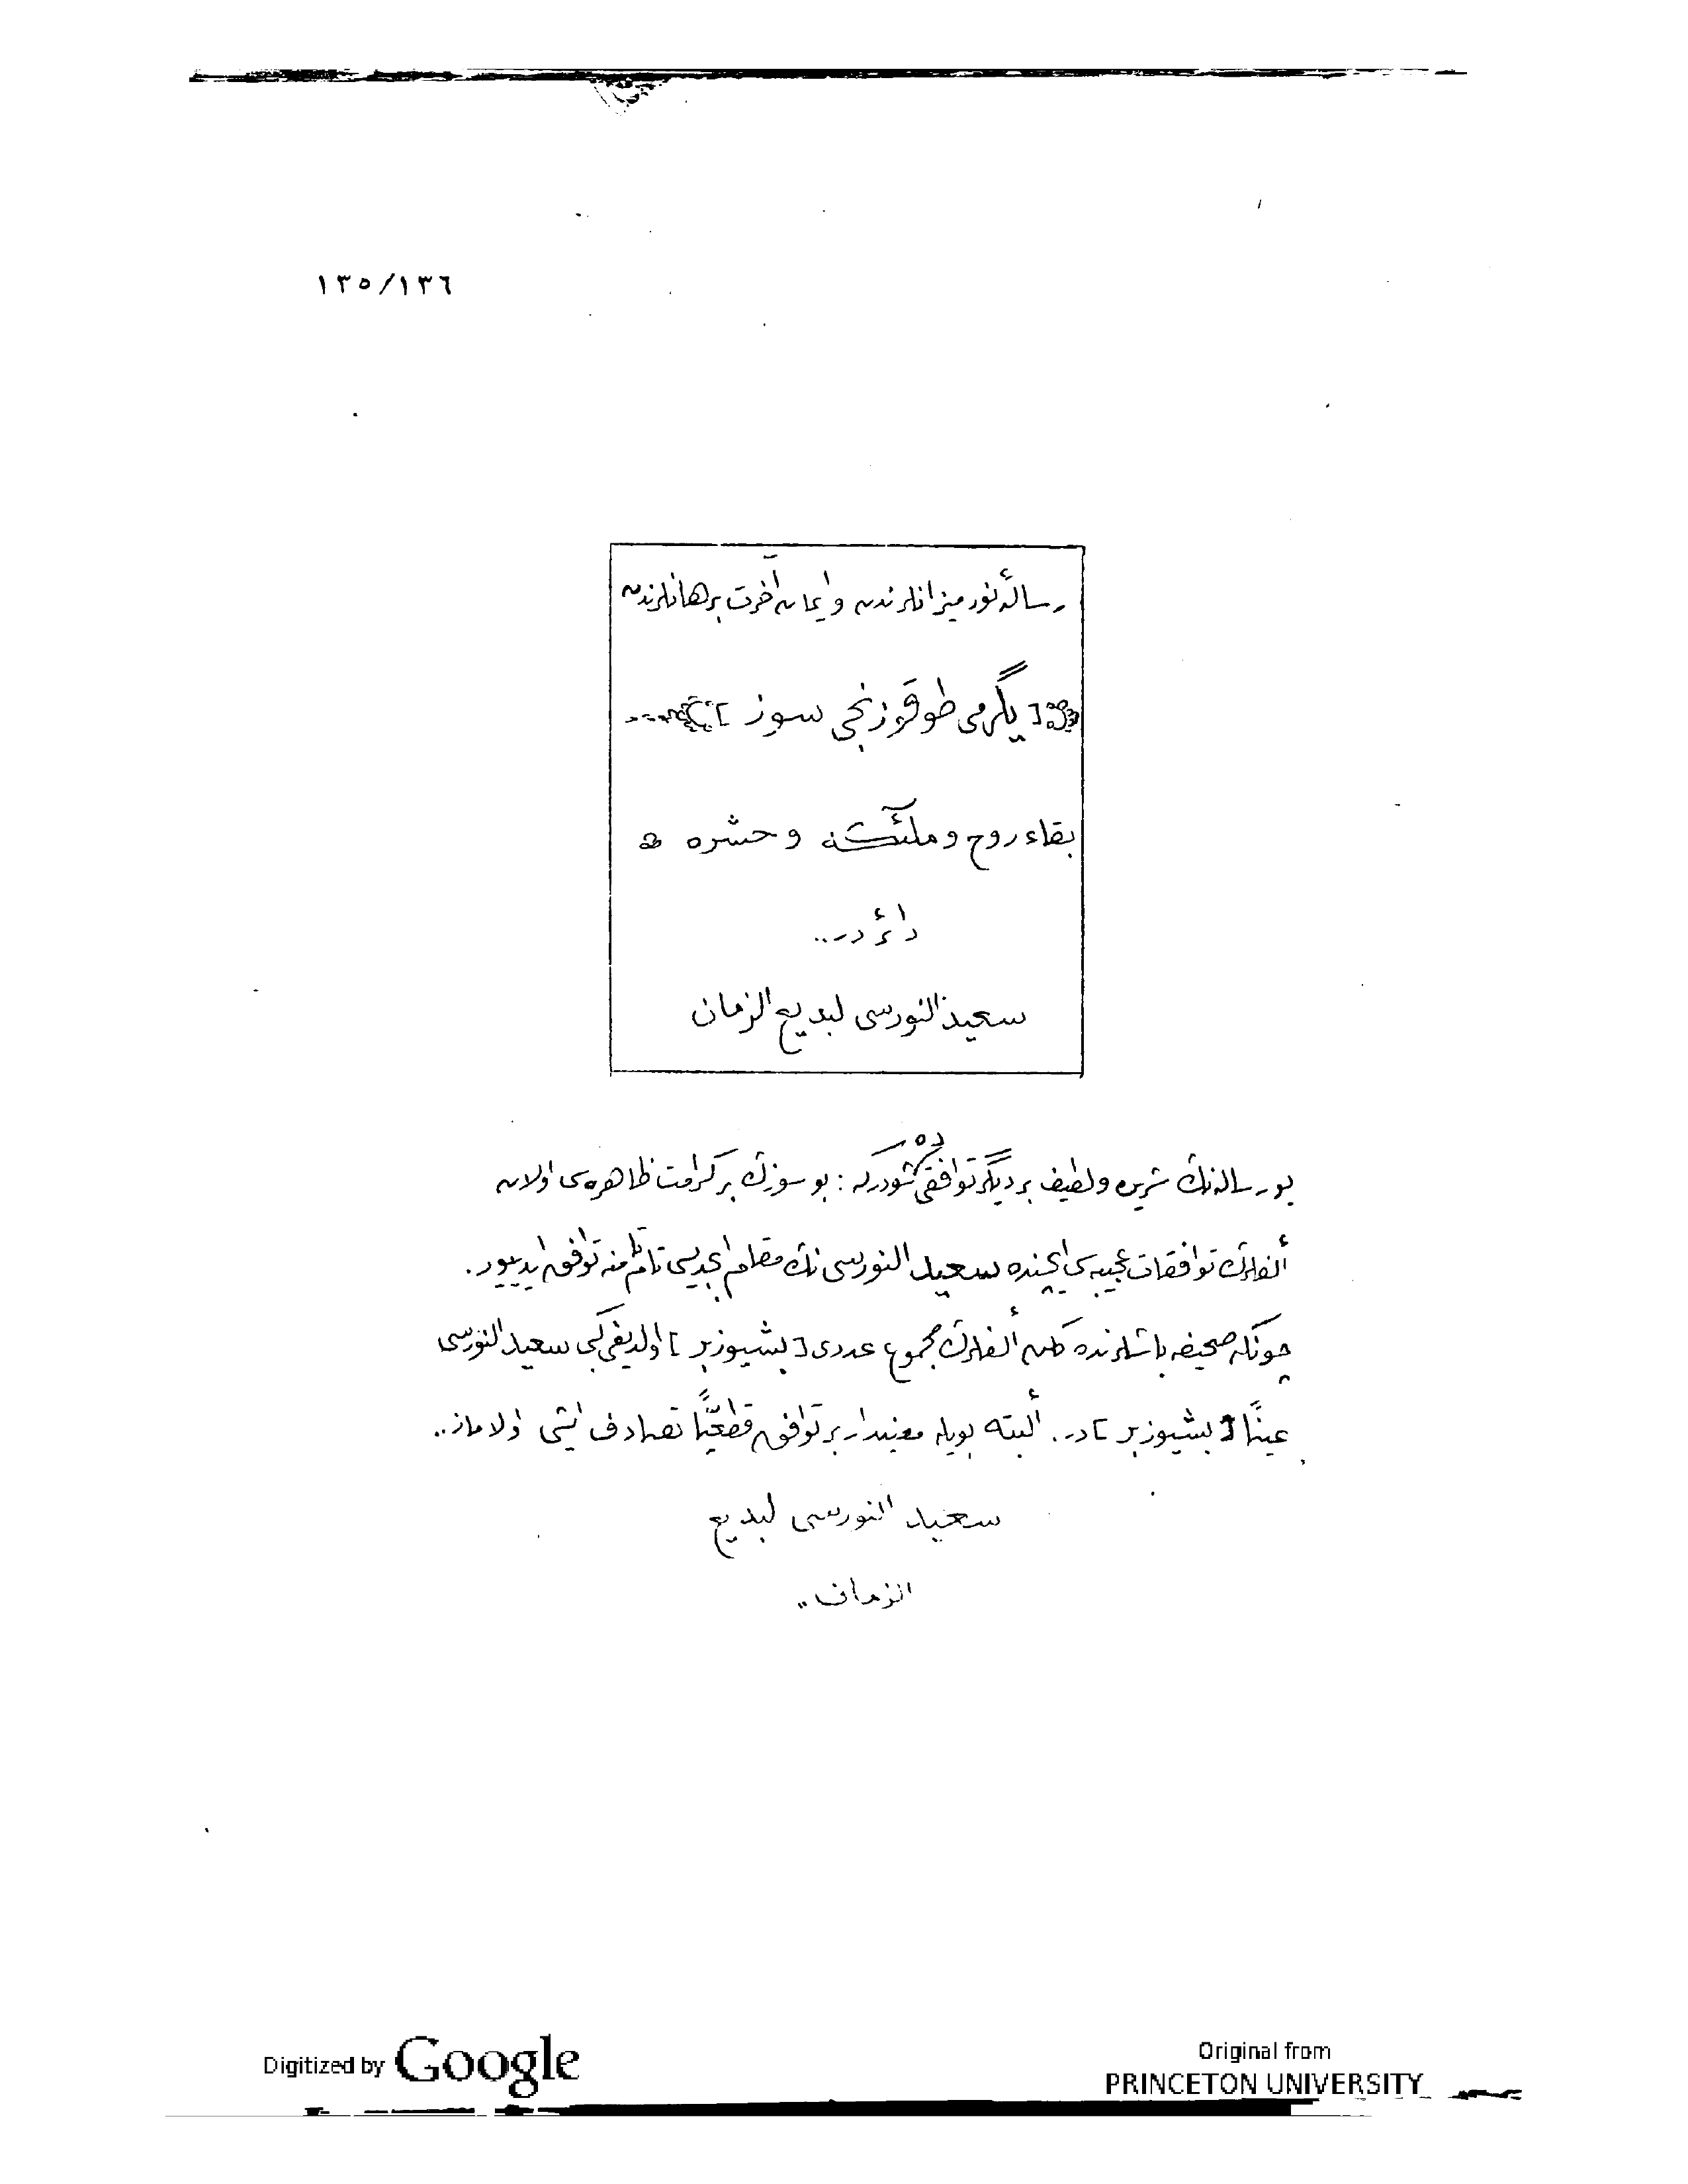 ١٣٥/١٣٦
رسالۀ نور ميزانلرندن و ايمان آخرت برهانلرندن
[ يگرمى طوقوزنجى سوز ]
بقاء روح و ملئكه و حشره
دائردر..
سعيد النورسى لبديع الزمان
بو رسالەنڭ شرين و لطيف بر ديگر توافقى ده شودركه : بو سوزڭ بر كرامت ظاهرەسى اولان
ألفلرڭ توافقات عجيبەسى ايچنده سعيد النورسى نڭ مقام ابجديسى تام تامنه توافق ايدييور.
چونكه صحيفه باشلرنده كلن ألفلرڭ مجموع عددى [ بشيوزبر ] اولديغى كبى سعيد النورسى
عينًا [ بشيوزبر ] در. ألبته بويله معنيدار بر توافق قطعيًّا تصادف ايشى اولاماز..
سعيد النورسى لبديع
الزمان..
Digitized by Google
Original from
PRINCETON UNIVERSITY